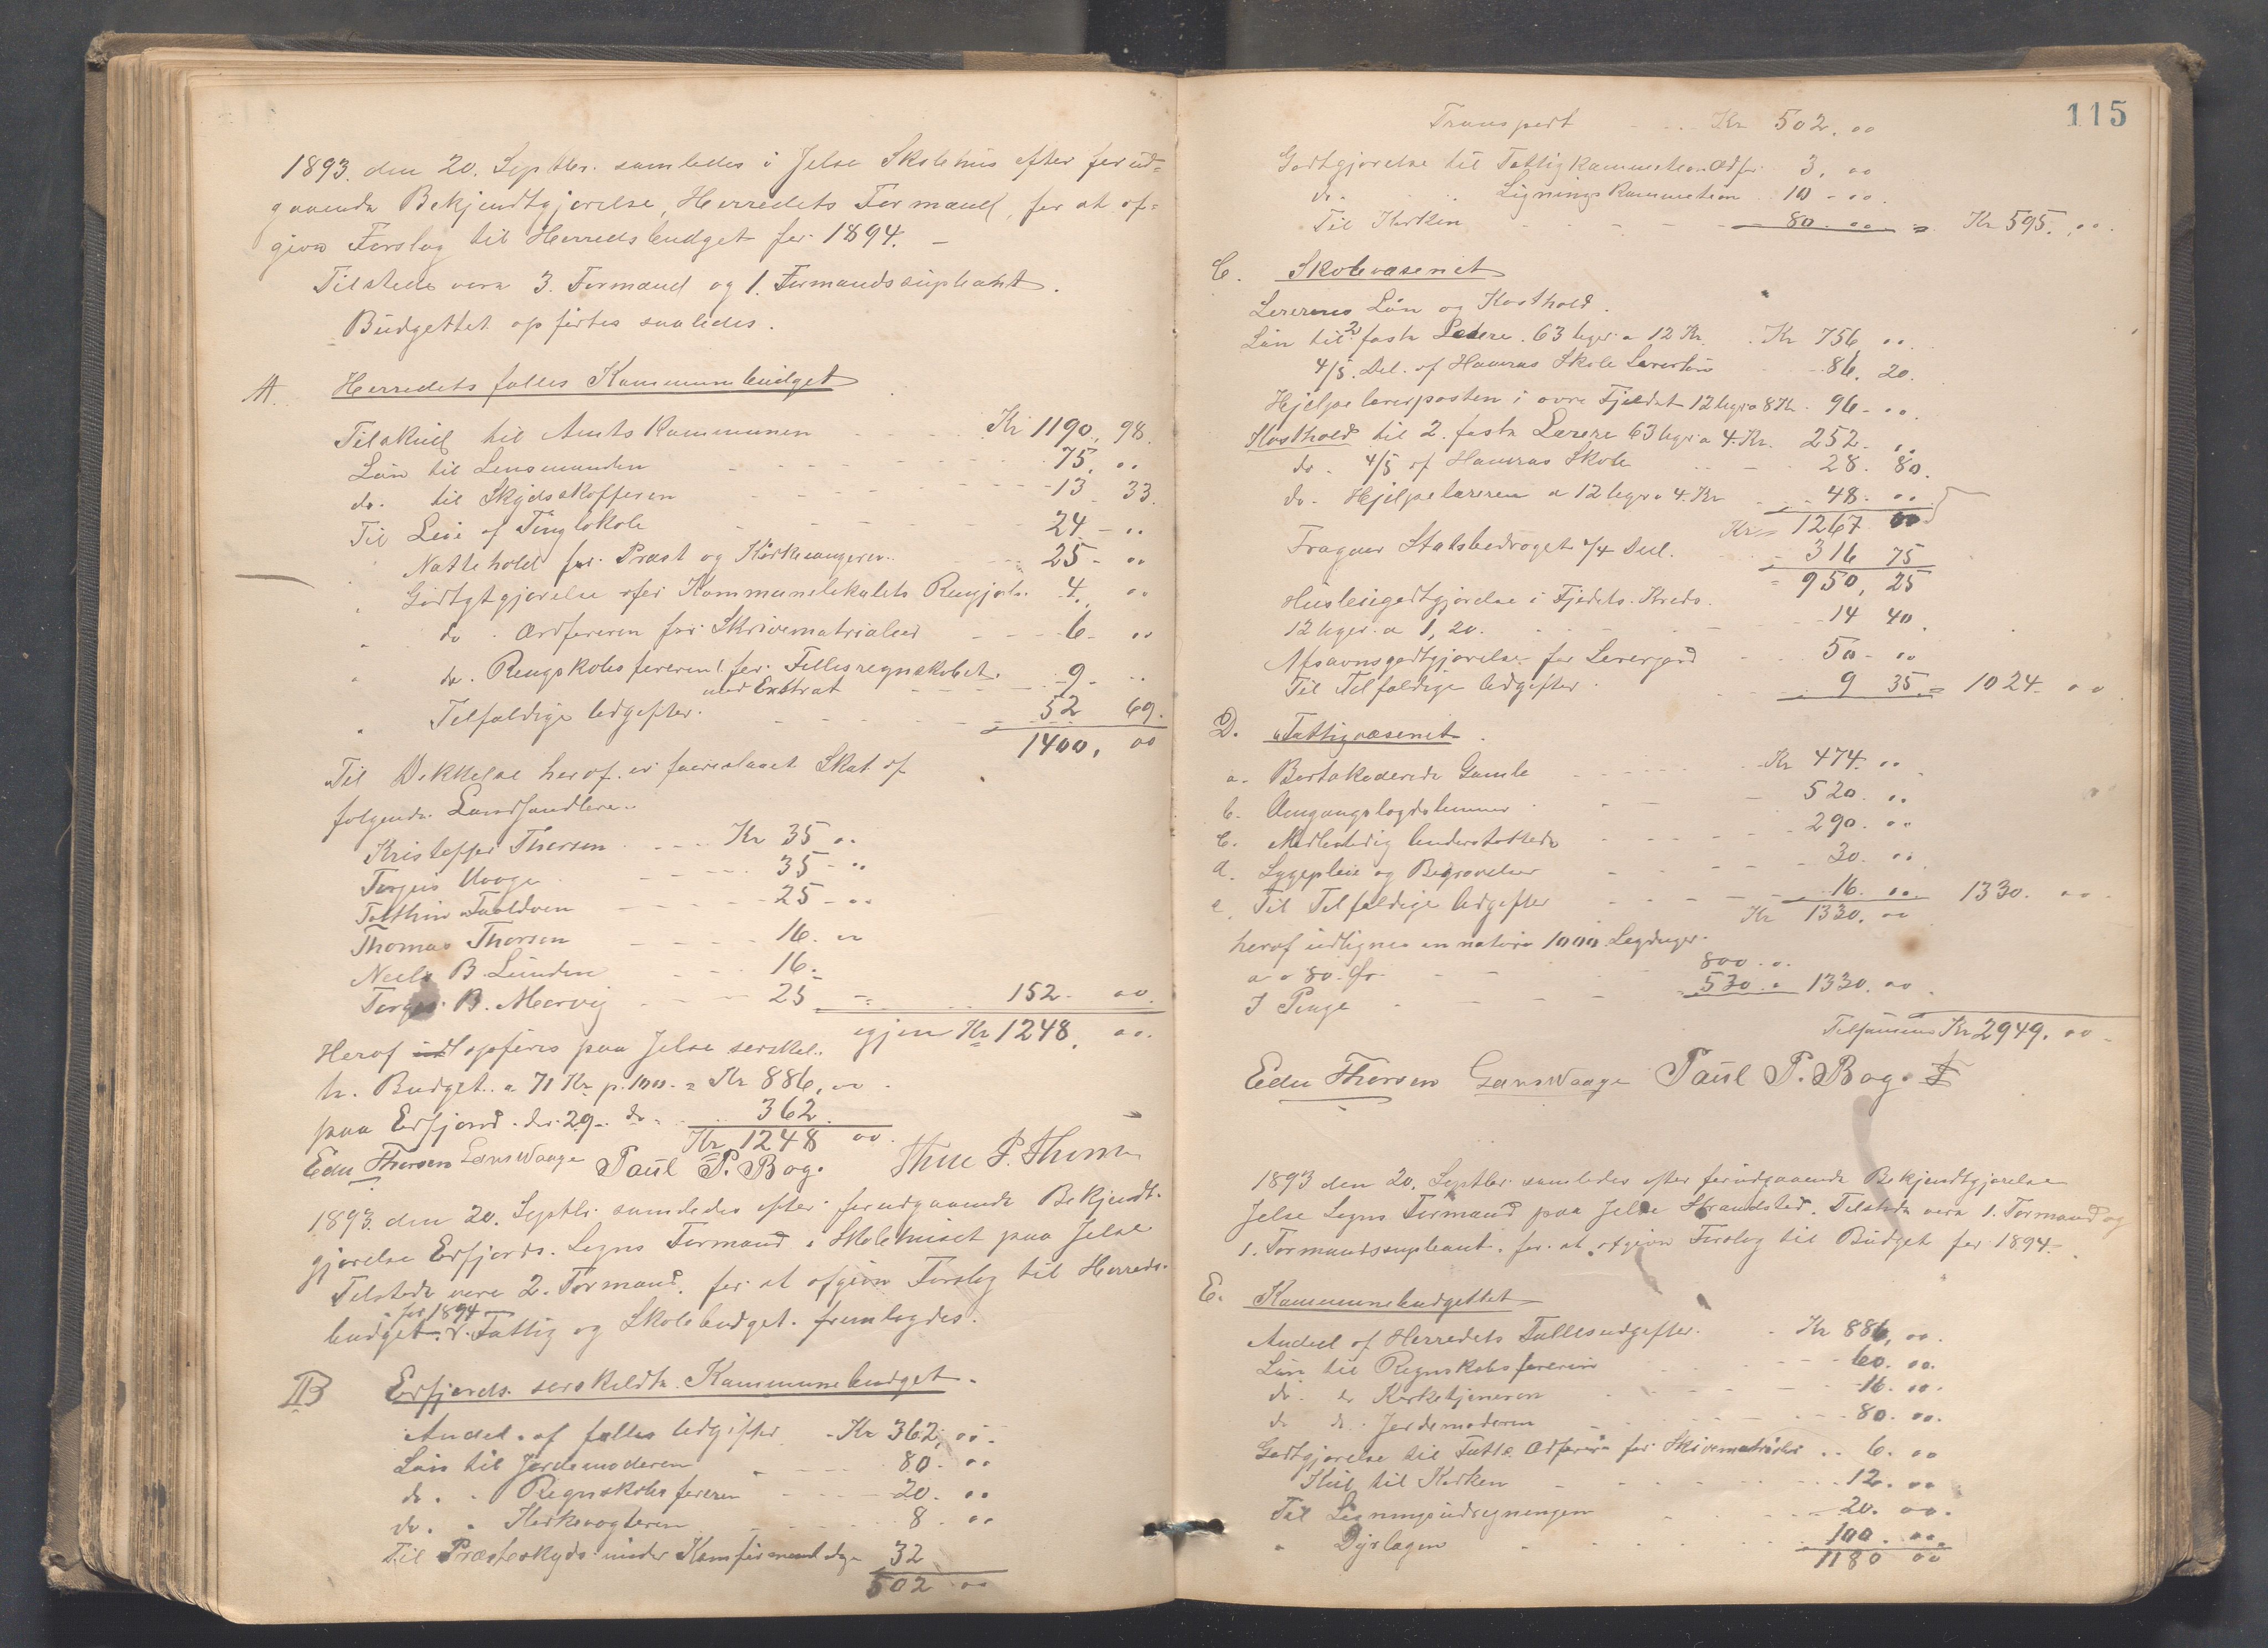 1893. den 20. Septbr. samledes i Jelse Skolehus efter forud-
gaaende Bekjendtgjørelse, Herredets Formænd, for at af-
give Forslag til Herredsbudget for 1894. –
Tilstede vare 3. Formænd og 1. Formandssupleant.
Budgettet opførtes saaledes.
A. Herredets fælles Kommunebudget
Tilskud til Amts Kommunen Kr 1190, 98.
Løn til Lensmanden 75, 00
do. til Skydsskafferen 13 33.
Til Leie af Tinglokale 24 – 00
" Nattehold for Præst og Kirkesangeren 25 – 00
" Godtgjørelse for Kommunelokalets Rengjør. 4. 00
" do. Ordføreren for Skrivematrialier 6 – 00
" do. Rengskabsføreren for Fællesregnskabet
med Extrat 9 – 00
" Tilfældige Udgifter. 52 69.
1400, 00
Til Dekkelse heraf er foreslaaet Skat af
følgende Landhandlere..
Kristoffer Thorsen Kr 35 00
Torgeis Vaage 35 – 00
Tollhin Fuoldven 25 – 00
Thomas Thorsen 16. 00
Neels B. Lunden 16.
Torgeis B. Marvig 25 = 152 – 00
igjen Kr 1248, 00.
Heraf opføres paa Jelse serskel-
te. Budget. a 71 Kr p. 100. = Kr 886, 00
paa Erfjord. do. 29 – do. 362.
Kr 1248 00.
Edu Thorsen Lars Waage Paul P. Bog.
1893. den 20. Septbr. samledes efter forudgaaende Bekjendt-
gjørelse Erfjords. Sogns Formænd i Skolehuset paa Jelse
Tilstede vare 2. Formænd. for at afgive Forslag til Herreds-
for 1894
budget. Fattig og Skolebudget. fremlagdes.
B Erfjords. serskeldte Kommunebudget.
Andel. af fælles Udgifter Kr 362, 00
Løn til Jordemoderen 80. 00
do. " Regnskabsføreren 20. 00
do. " Kirkevogteren 8. 00
Til Præsteskyds under Konfirmant dage 32
502 00
115
Transport Kr 502. 00
Godtgjørelse til Fattigkammetion. Odfø. 3, 00
do. Lignings Kammetion 10 – 00
Til Kirken 80. 00 = Kr 595. 00.
C. Skolevæsenet
Lærernes Løn og Kosthold.
Løn til 2 faste Lærere. 63 Uger a 12 Kr. Kr 756 00
4/5. Del. af Hamras Skole Lærerløn 86. 20.
Hjelpelærerposten i øvre Fjeldet 12 Uger a 8 Kr. 96 – 00.
Kosthold til 2. faste Lærere 63 Uger a 4. Kr. 252 – 00
do. 4/5 af Hamras Skole 28. 80.
do. Hjelpelæreren a 12 Uger a 4. Kr 48. 00
Kr = 1267 00
Fragaar Statsbedraget 1/4 Deel. 316 75
= 950, 25
Husleiegodtgjørelse i Fjeldets. Kreds.
12 Uger. a 1,20. 14 40.
Afsavnsgodtgjørelse for Lærerjord 50 – 00
Til Tilfældige Udgifter. 9 35. = 1024. 00
D. Fattigvæsenet.
a. Bortakoderede Gamle Kr 474. 00
b. Omgangslægdslemmer 520. 00
c. Midlertidig Understøttede 290. 00
d. Sygepleie og Begravelser 30. 00
e. Til Tilfældige Udgifter 16. 00 1330. 00
Kr 1330. 00
heraf udlignes in natura 1000 Legdager.
a 80. Ør. 800. 0.
I Penge 530. 0 1330. 00
Tilsammen Kr 2949. 00
Edu Thorsen Lars Waage Paul P. Bog.
1893 den 20. Septbr. samledes efter forudgaaende Bekjendtgjørelse
Jelse Sogns Formænd paa Jelse Strandsted. Tilstede vare 1. Formand og
1. Formandssupleant. for at afgive Forslag til Budget for 1894 –
E. Kommunebudgettet
Andeel af Herredets Fællesudgifter. Kr 886, 00.
Løn til Regnskabsføreren 60. 00.
do. " Kirketjeneren 16. 00.
do do. Jordemoderen 80. 00.
Godtgjørelse til Fatt. Odføreren for Skivematrialier 6. 00
Kul til Kirken 12. 00
Til Ligningsudregningen 20. 00.
" Dyrlægen 100. 00.
1180 00